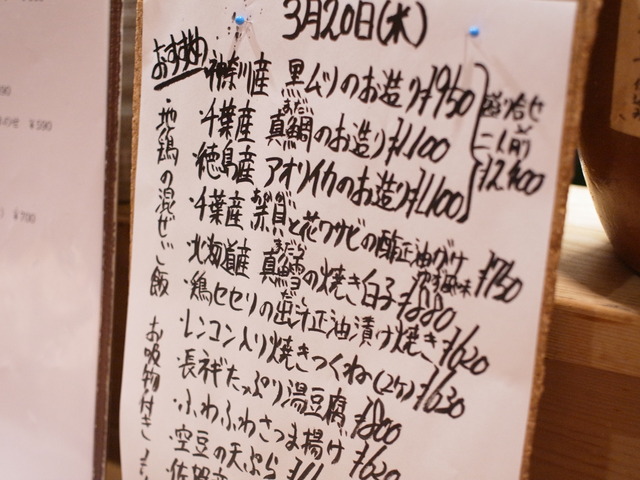 3月20日(水)
おすすめ
神奈川産 黒ムツのお造り ¥950
千葉産 真鯛のお造り ¥1,100
まだい
徳島産 アオリイカのお造り ¥1,100
盛り合せ
二人前
¥2,400
千葉産 と花ワサビの酢正油がけ ¥750
北海道産 真鱈の焼き白子 ¥880
まだら
・鶏セセリの出汁正油漬け焼き ¥620
・レンコン入り焼きつくね(2ケ) ¥630
・長ネギたっぷり湯豆腐 ¥800
・ふわふわさつま揚げ ¥620
・空豆の天ぷら
佐賀産
地鶏の混ぜご飯
お吸物付き
¥590
¥700